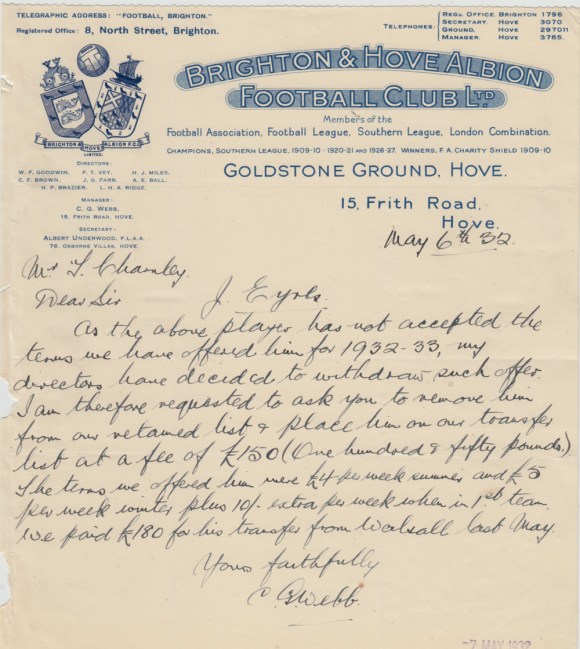 TELEGRAPHIC ADDRESS: "FOOTBALL, BRIGHTON."
Registered Office: 8, North Street, Brighton.
TELEPHONES:
REG. OFFICE. BRIGHTON 1796
SECRETARY. HOVE 3070
GROUND. HOVE 297011
MANAGER. HOVE 3765.
BRIGHTON & HOVE ALBION
FOOTBALL CLUB LTD
BRIGHTON & HOVE ALBION F.C.
LIMITED.
Members of the
Football Association, Football League, Southern League, London Combination.
CHAMPIONS, SOUTHERN LEAGUE, 1909-10 · 1920-21 AND 1926-27. WINNERS, F.A. CHARITY SHIELD 1909-10
GOLDSTONE GROUND, HOVE.
DIRECTORS:
W. F. GOODWIN. P. T. VEY. H. J. MILES.
C. F. BROWN. J. G. FARR. A. E. BALL.
H. P. BRAZIER. L. H. A. RIDGE.
MANAGER:
C. G. WEBB,
15, FRITH ROAD, HOVE.
SECRETARY:
ALBERT UNDERWOOD, F.L.A.A.
76, OSBORNE VILLAS, HOVE.
15, Frith Road,
Hove.
May 6th 32.
Mr T. Charnley.
Dear Sir J. Eyres.
As the above player has not accepted the
terms we have offered him for 1932-33, my
directors have decided to withdraw such offer.
I am therefore requested to ask you to remove him
from our retained list & place him on our transfer
list at a fee of £150 (One hundred & fifty pounds.)
The terms we offered him were £4 per week summer and £5
per week winter plus 10/- extra per week when in 1st team.
We paid £180 for his transfer from Walsall last May.
Yours faithfully
C. G. Webb.
-7 MAY 1932